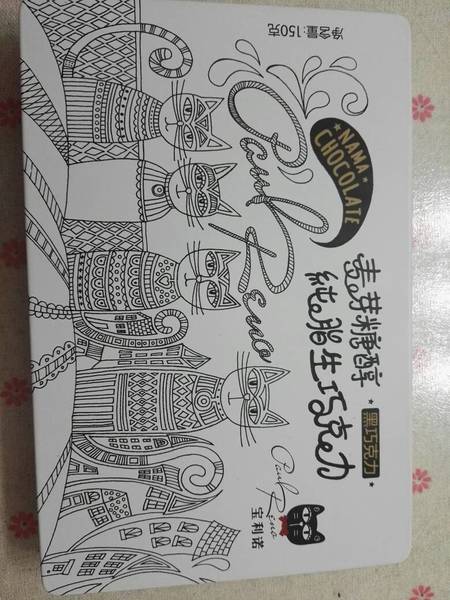 净含量:150克
NAMA
CHOCOLATE
Paul
Reno
麦芽糖醇
純脂生巧克力
黑巧克力
Paul
Reno
宝利诺